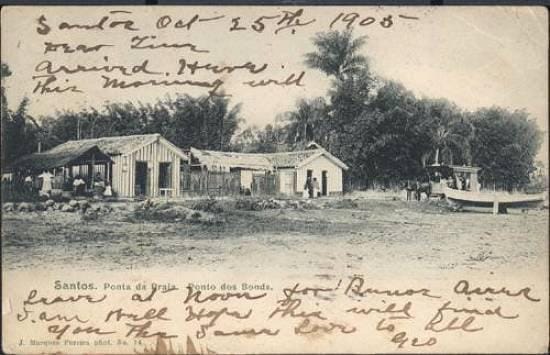 Santos Oct 25th 1905
Dear Time
Arrived Here
This Morning will
Santos. Ponta da Praia. Ponto dos Bonds.
Leave at Noon for Buenos Aires
I am Well Hope This will find
You the Same Love to all
Geo
J. Marques Pereira phot. No. 14